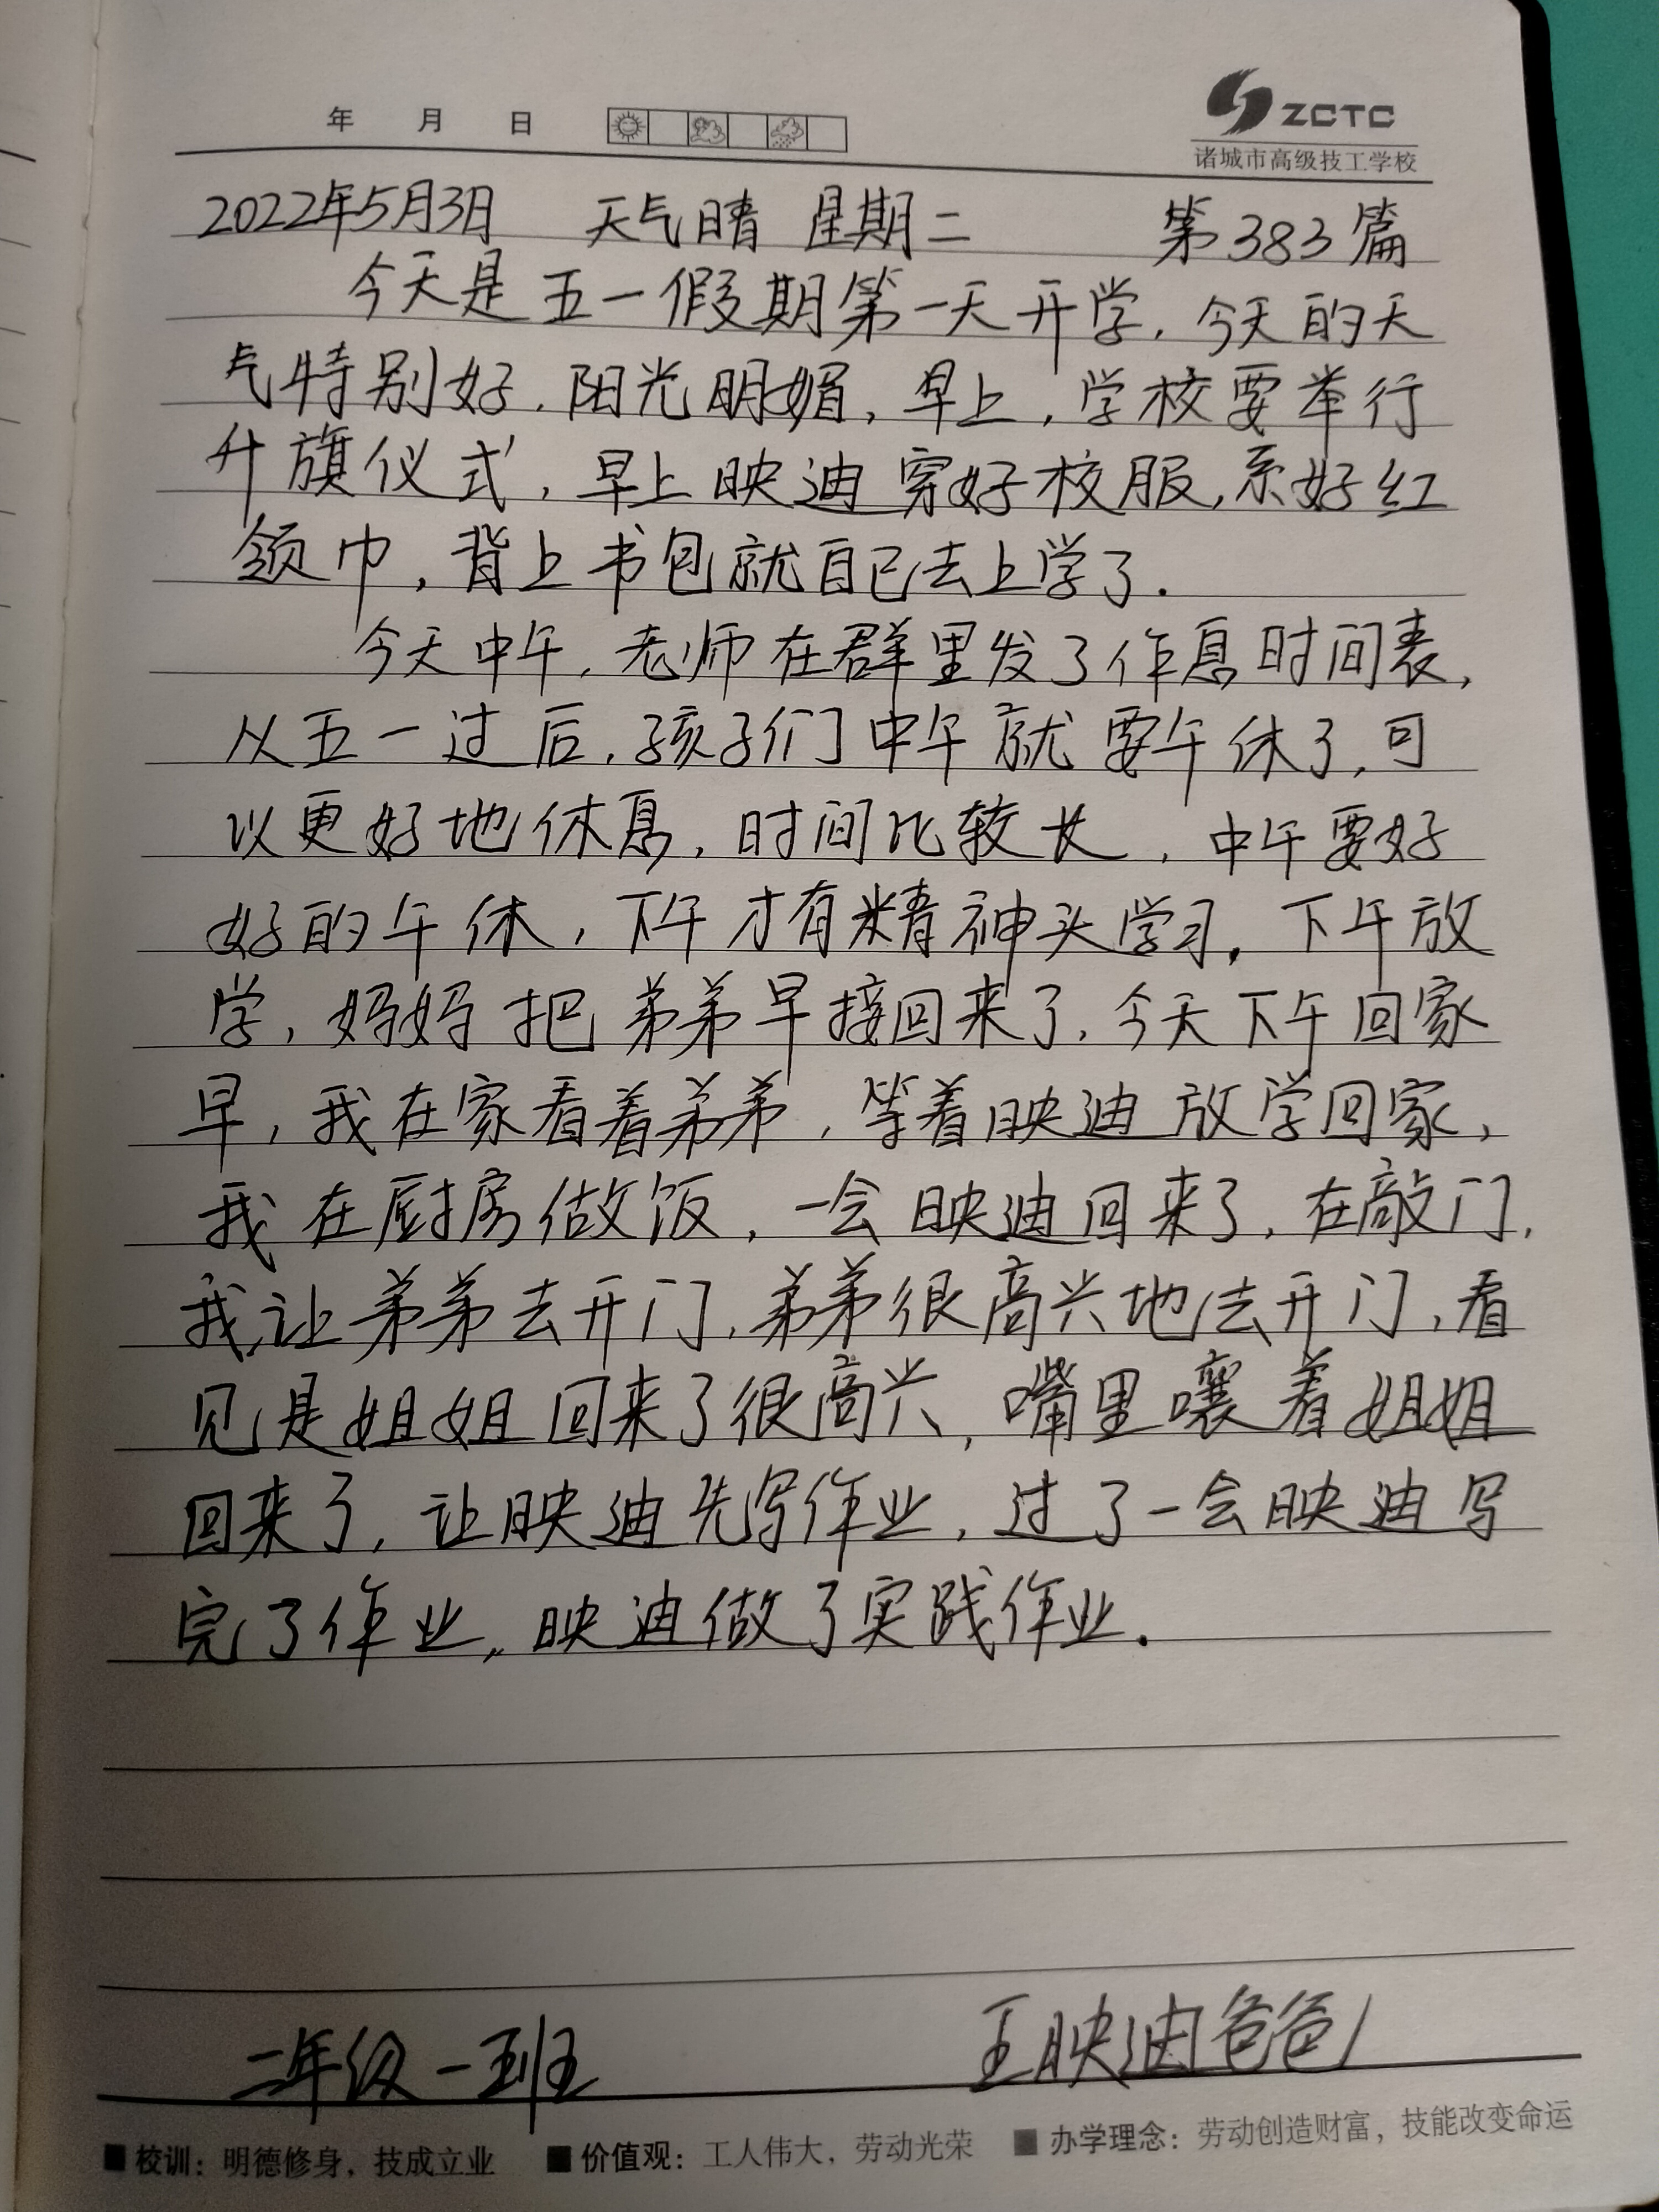 年 月 日
ZCTC
诸城市高级技工学校
2022年5月3日 天气晴 星期二 第383篇
今天是五一假期第一天开学，今天的天
气特别好，阳光明媚，早上，学校要举行
升旗仪式，早上映迪穿好校服，系好红
领巾，背上书包就自己去上学了.
今天中午，老师在群里发了作息时间表，
从五一过后，孩子们中午就要午休了，可
以更好地休息，时间比较长，中午要好
好的午休，下午才有精神头学习。下午放
学，妈妈把弟弟早接回来了，今天下午回家
早，我在家看着弟弟，等着映迪放学回家，
我在厨房做饭，一会映迪回来了，在敲门，
我让弟弟去开门，弟弟很高兴地去开门，看
见是姐姐回来了很高兴，嘴里嚷着姐姐
回来了，让映迪先写作业，过了一会映迪写
完了作业，映迪做了实践作业.
二年级一班 王映迪爸爸
■校训：明德修身，技成立业 ■价值观：工人伟大，劳动光荣 ■办学理念：劳动创造财富，技能改变命运